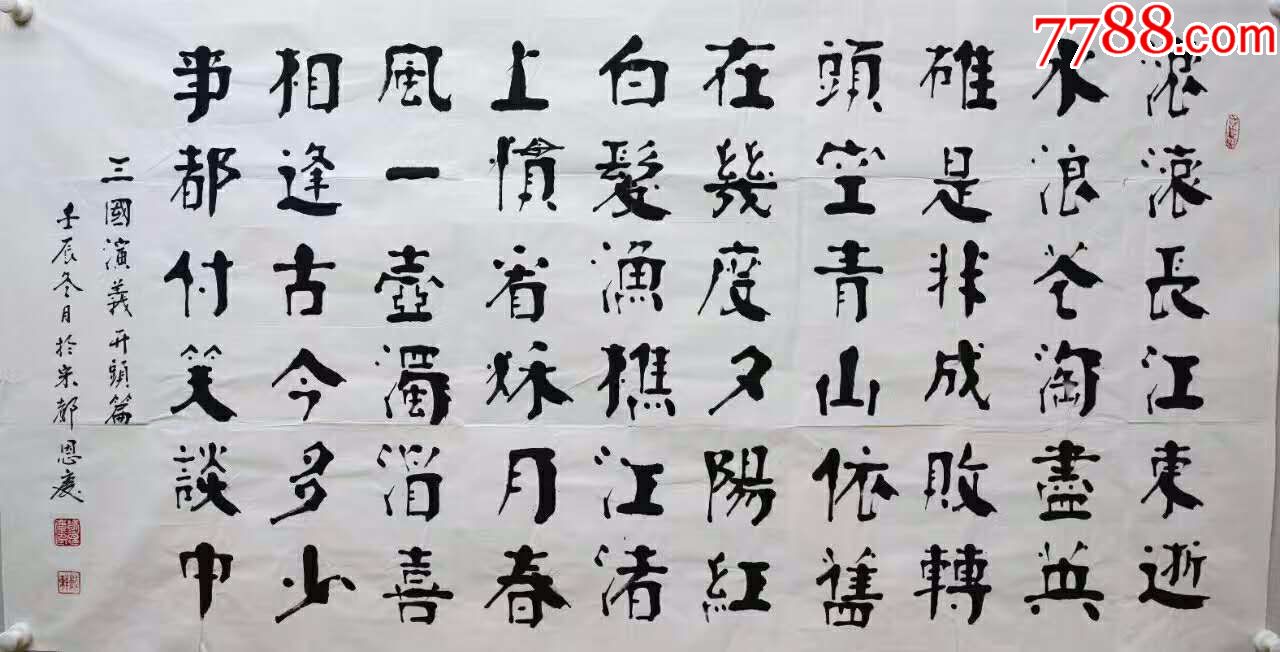 7788.com
滾滾長江東逝
水浪花淘盡英
雄是非成敗轉
頭空青山依舊
在幾度夕陽紅
白髮漁樵江渚
上慣看秋月春
風一壺濁酒喜
相逢古今多少
事都付笑談中
三國演義开頭篇
壬辰冬月於宋